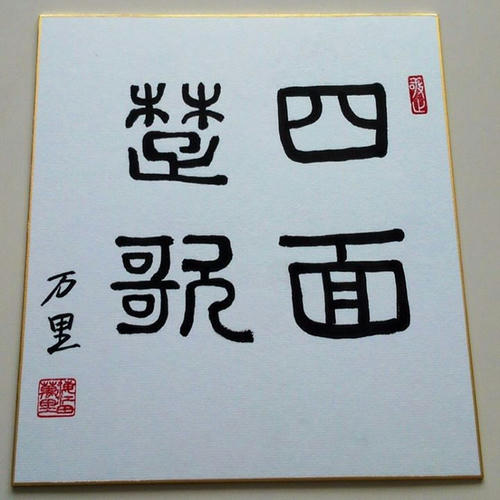 四面
楚歌
万里